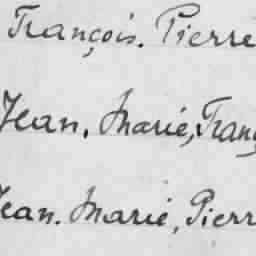 François. Pierre
Jean. Marie, Franç
Jean. Marie, Pierr